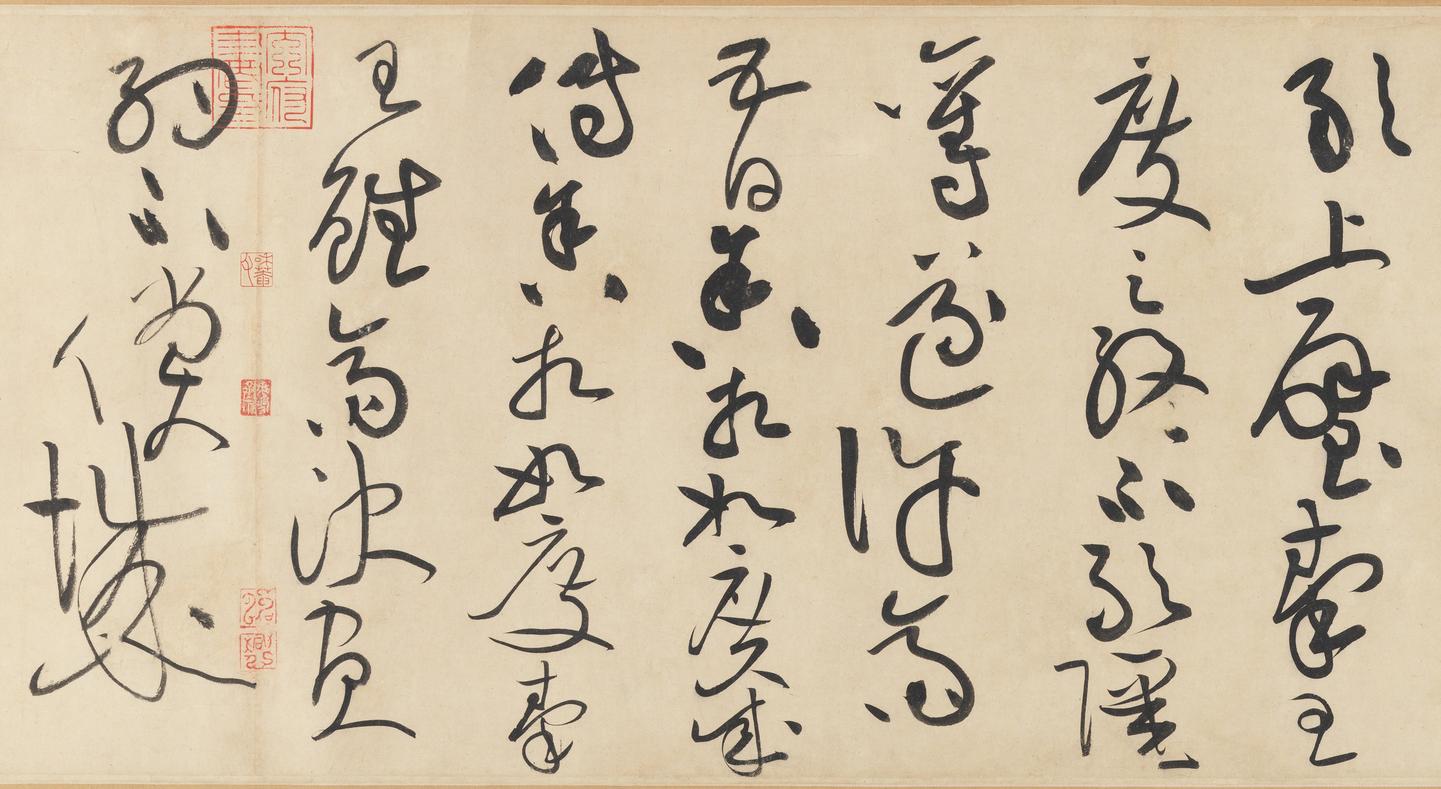 敢上璧秦王
度之終不敢彊
奪遂許齋
五日舍相如廣成
傳舍相如度秦
王雖齋決負
約不償城